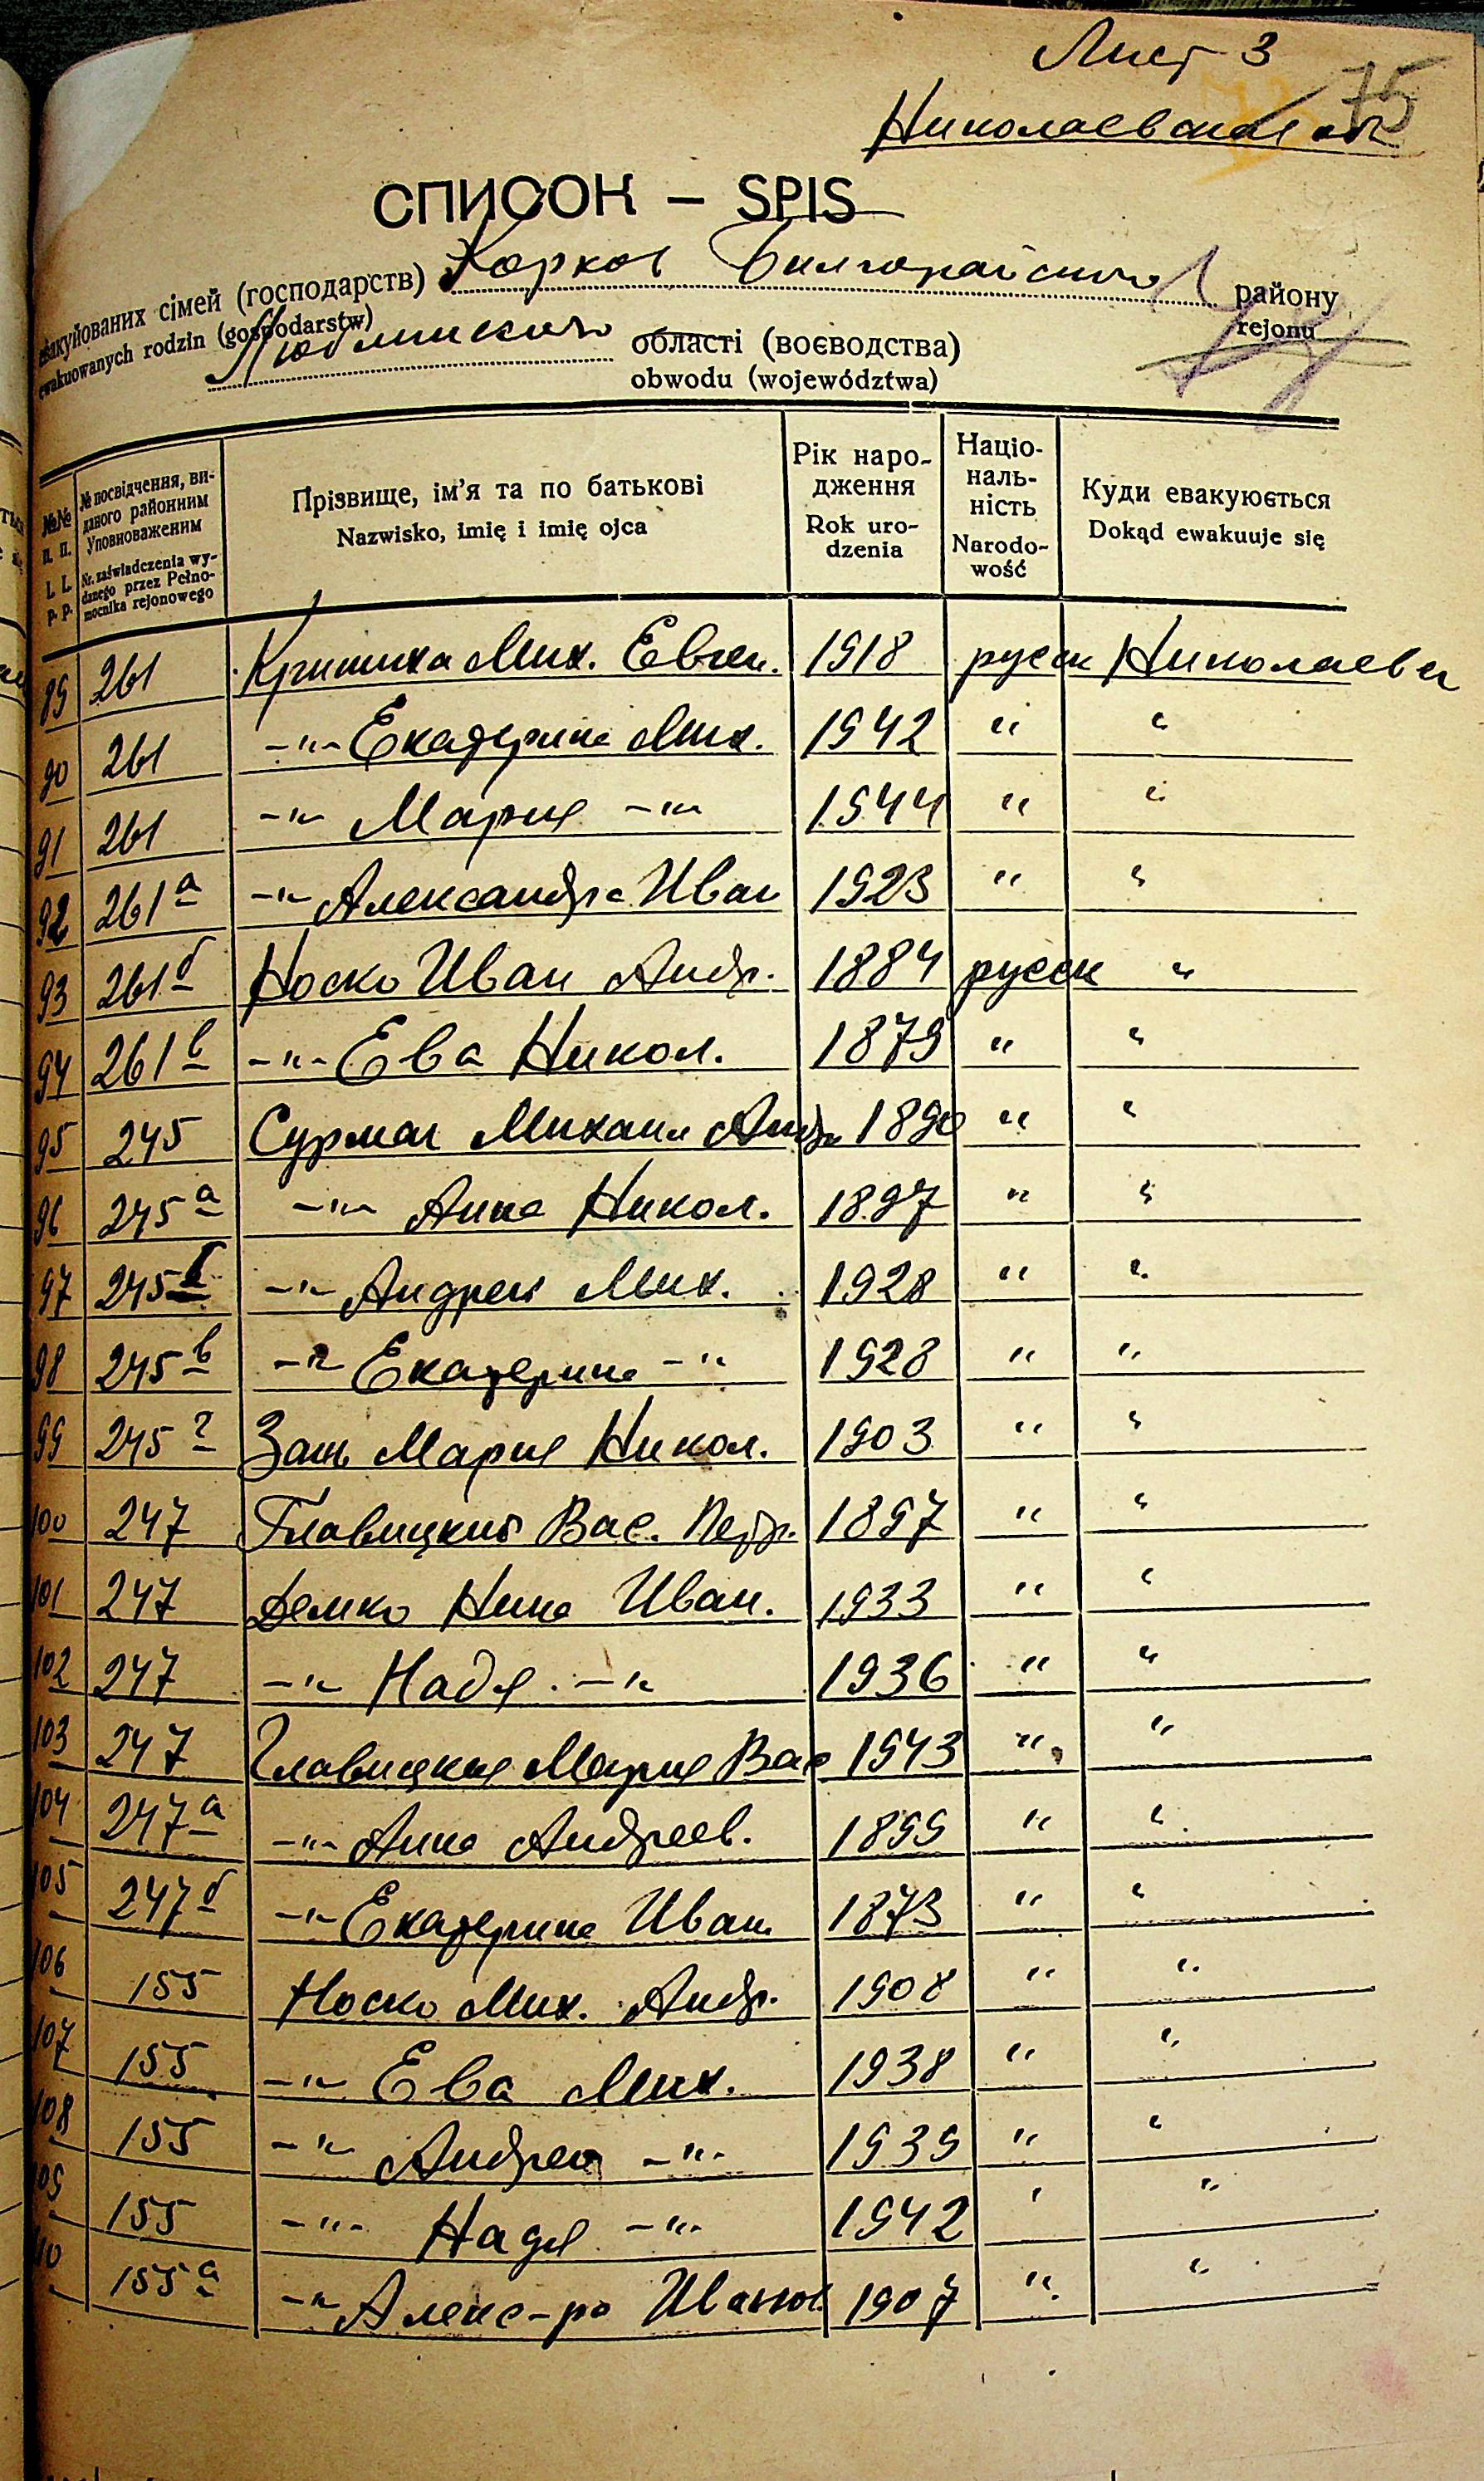 Лист 3
75
Николаевская обл
СПИСОК — SPIS
евакуйованих сімей (господарств) Корхов Билгорайского району
ewakuowanych rodzin (gospodarstw) rejonu
Люблинского області (воєводства)
obwodu (województwa)
№№ п. п. № посвідчення, виданого районним Уповноваженим Прізвище, ім'я та по батькові Рік народження Націо-наль-ність Куди евакуюється
L. L. p. p. Nr. zaświadczenia wy-danego przez Pełno-mocnika rejonowego Nazwisko, imię i imię ojca Rok uro-dzenia Narodo-wość Dokąd ewakuuje się
89 261 Мих. Евген. 1918 русск Николаевск
90 261 -"- Екатерина Мих. 1942 " "
91 261 -"- Мария -"- 1944 " "
92 261а -"- Александра Иван 1923 " "
93 261б Носко Иван Андр. 1884 русск "
94 261в -"- Ева Никол. 1879 " "
95 245 Сурмач Михаил Андр. 1890 " "
96 245а -"- Анна Никол. 1897 " "
97 245б -"- Андрей Мих. 1928 " "
98 245в -"- Екатерина -"- 1928 " "
99 245г Мария Никол. 1903 " "
100 247 Главицкий Вас. Петр. 1897 " "
101 247 Демко Нина Иван. 1933 " "
102 247 -"- Надя -"- 1936 " "
103 247 Главицкая Мария Вас 1943 " "
104 247а -"- Анна Андреев. 1899 " "
105 247б -"- Екатерина Иван. 1873 " "
106 155 Носко Мих. Андр. 1908 " "
107 155 -"- Ева Мих. 1938 " "
108 155 -"- Андрей -"- 1939 " "
109 155 -"- Надя -"- 1942 " "
110 155а -"- Алекс-ра Иванов. 1907 " "